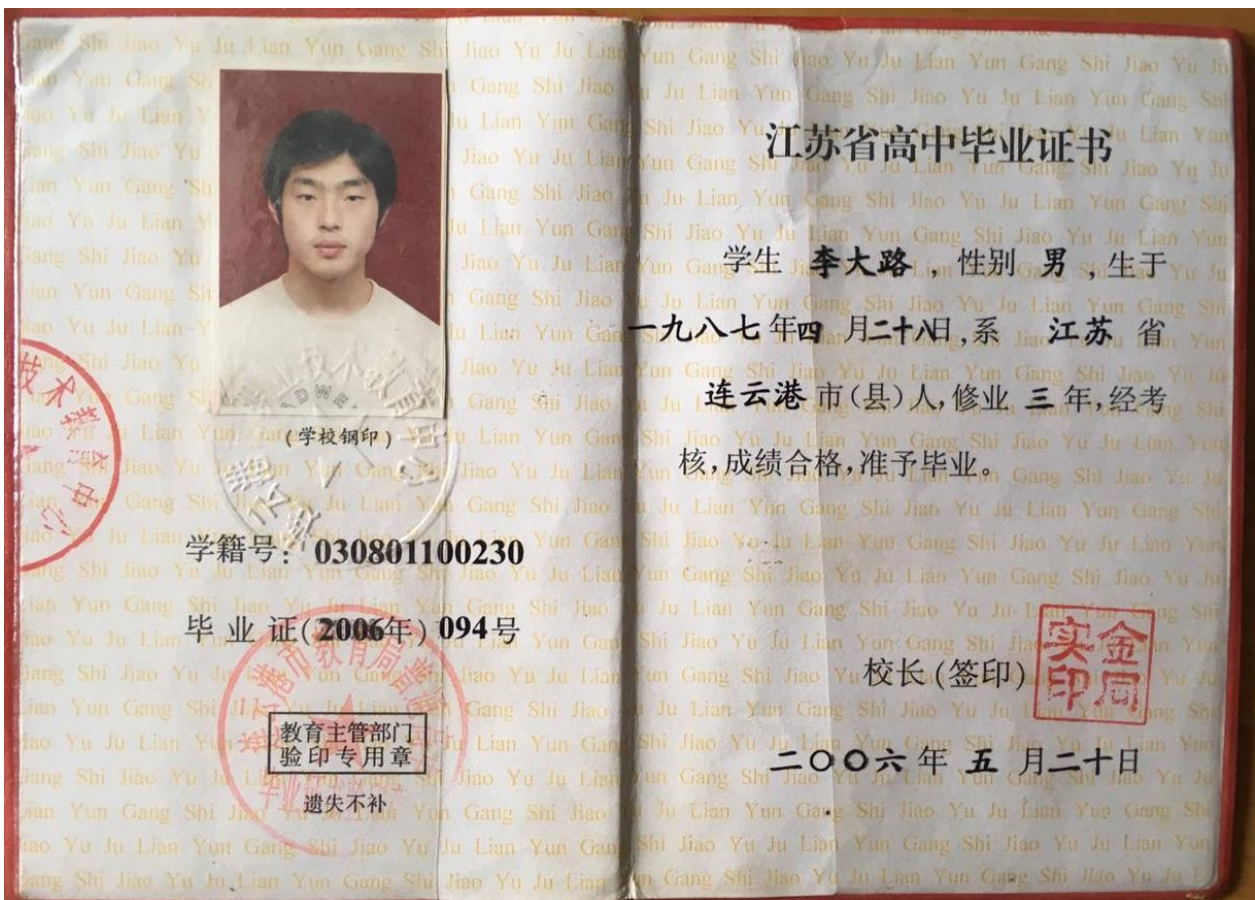 (学校钢印)
学籍号：030801100230
毕业证(2006年)094号
教育主管部门
验印专用章
遗失不补
江苏省高中毕业证书
学生 李大路，性别 男，生于
一九八七年四月二十八日，系 江苏 省
连云港市(县)人，修业 三 年，经考
核，成绩合格，准予毕业。
校长(签印)
二〇〇六年 五 月二十日